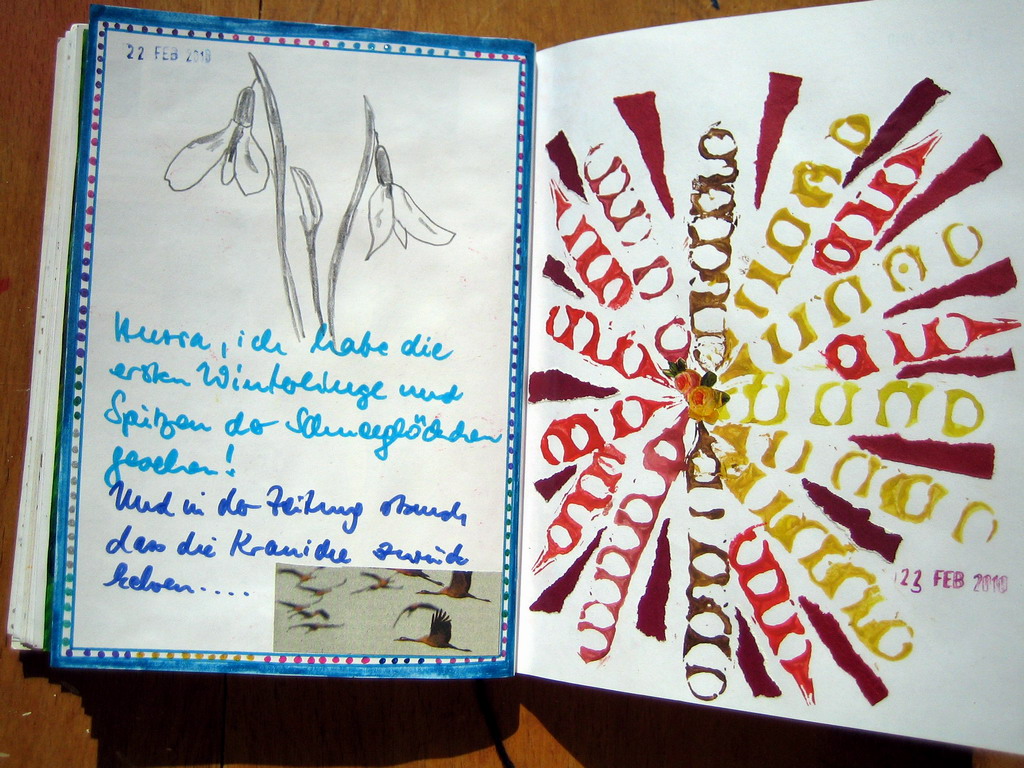 22 FEB 2010
Hurra, ich habe die
ersten Winterlinge und
Spitzen der Schneeglöckchen
gesehen!
Und in der Zeitung stand,
dass die Kraniche zurück
kehren.....
23 FEB 2010